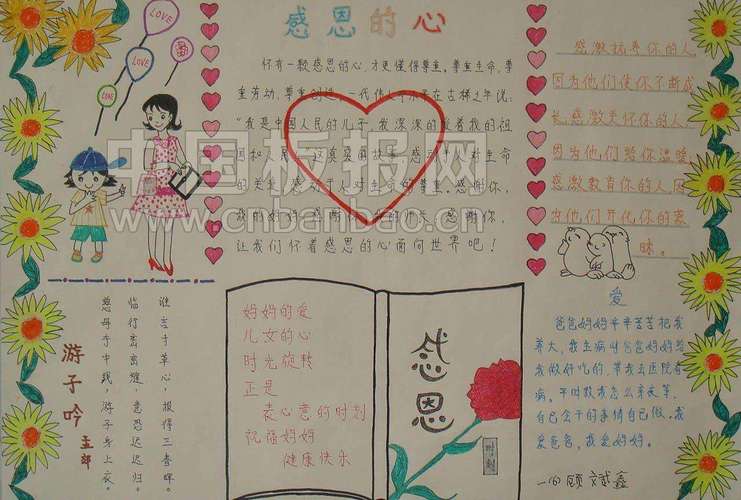 感恩的心
LOVE
LOVE
LOVE
怀有一颗感恩的心,才更懂得尊重。尊重生命、尊
重劳动、尊重创造。一代伟人
在古稀之年说:
"我是中国人民的儿子,我深深的爱着我的祖
国和人民
感动于人对生命
的尊重。感谢你,
感谢你,
让我们怀着感恩的心面向世界吧!
感激抚养你的人,
因为他们使你不断成
长;感激关怀你的人,
因为他们给你温暖;
感激教育你的人,因
为他们开化你的蒙
昧。
中国板报网
www.cnbanbao.cn
游子吟
慈母手中线,游子身上衣。
临行密密缝,意恐迟迟归。
谁言寸草心,报得三春晖。
妈妈的爱
儿女的心
时光旋转
正是
表心意的时刻
祝福妈妈
健康快乐
感恩
时刻
爱
爸爸妈妈辛辛苦苦把我
养大,我生病时爸爸妈妈给
我做好吃的,带我去医院看
病。平时教我怎么
自己会干的事情自己做,我
爱爸爸,我爱妈妈。